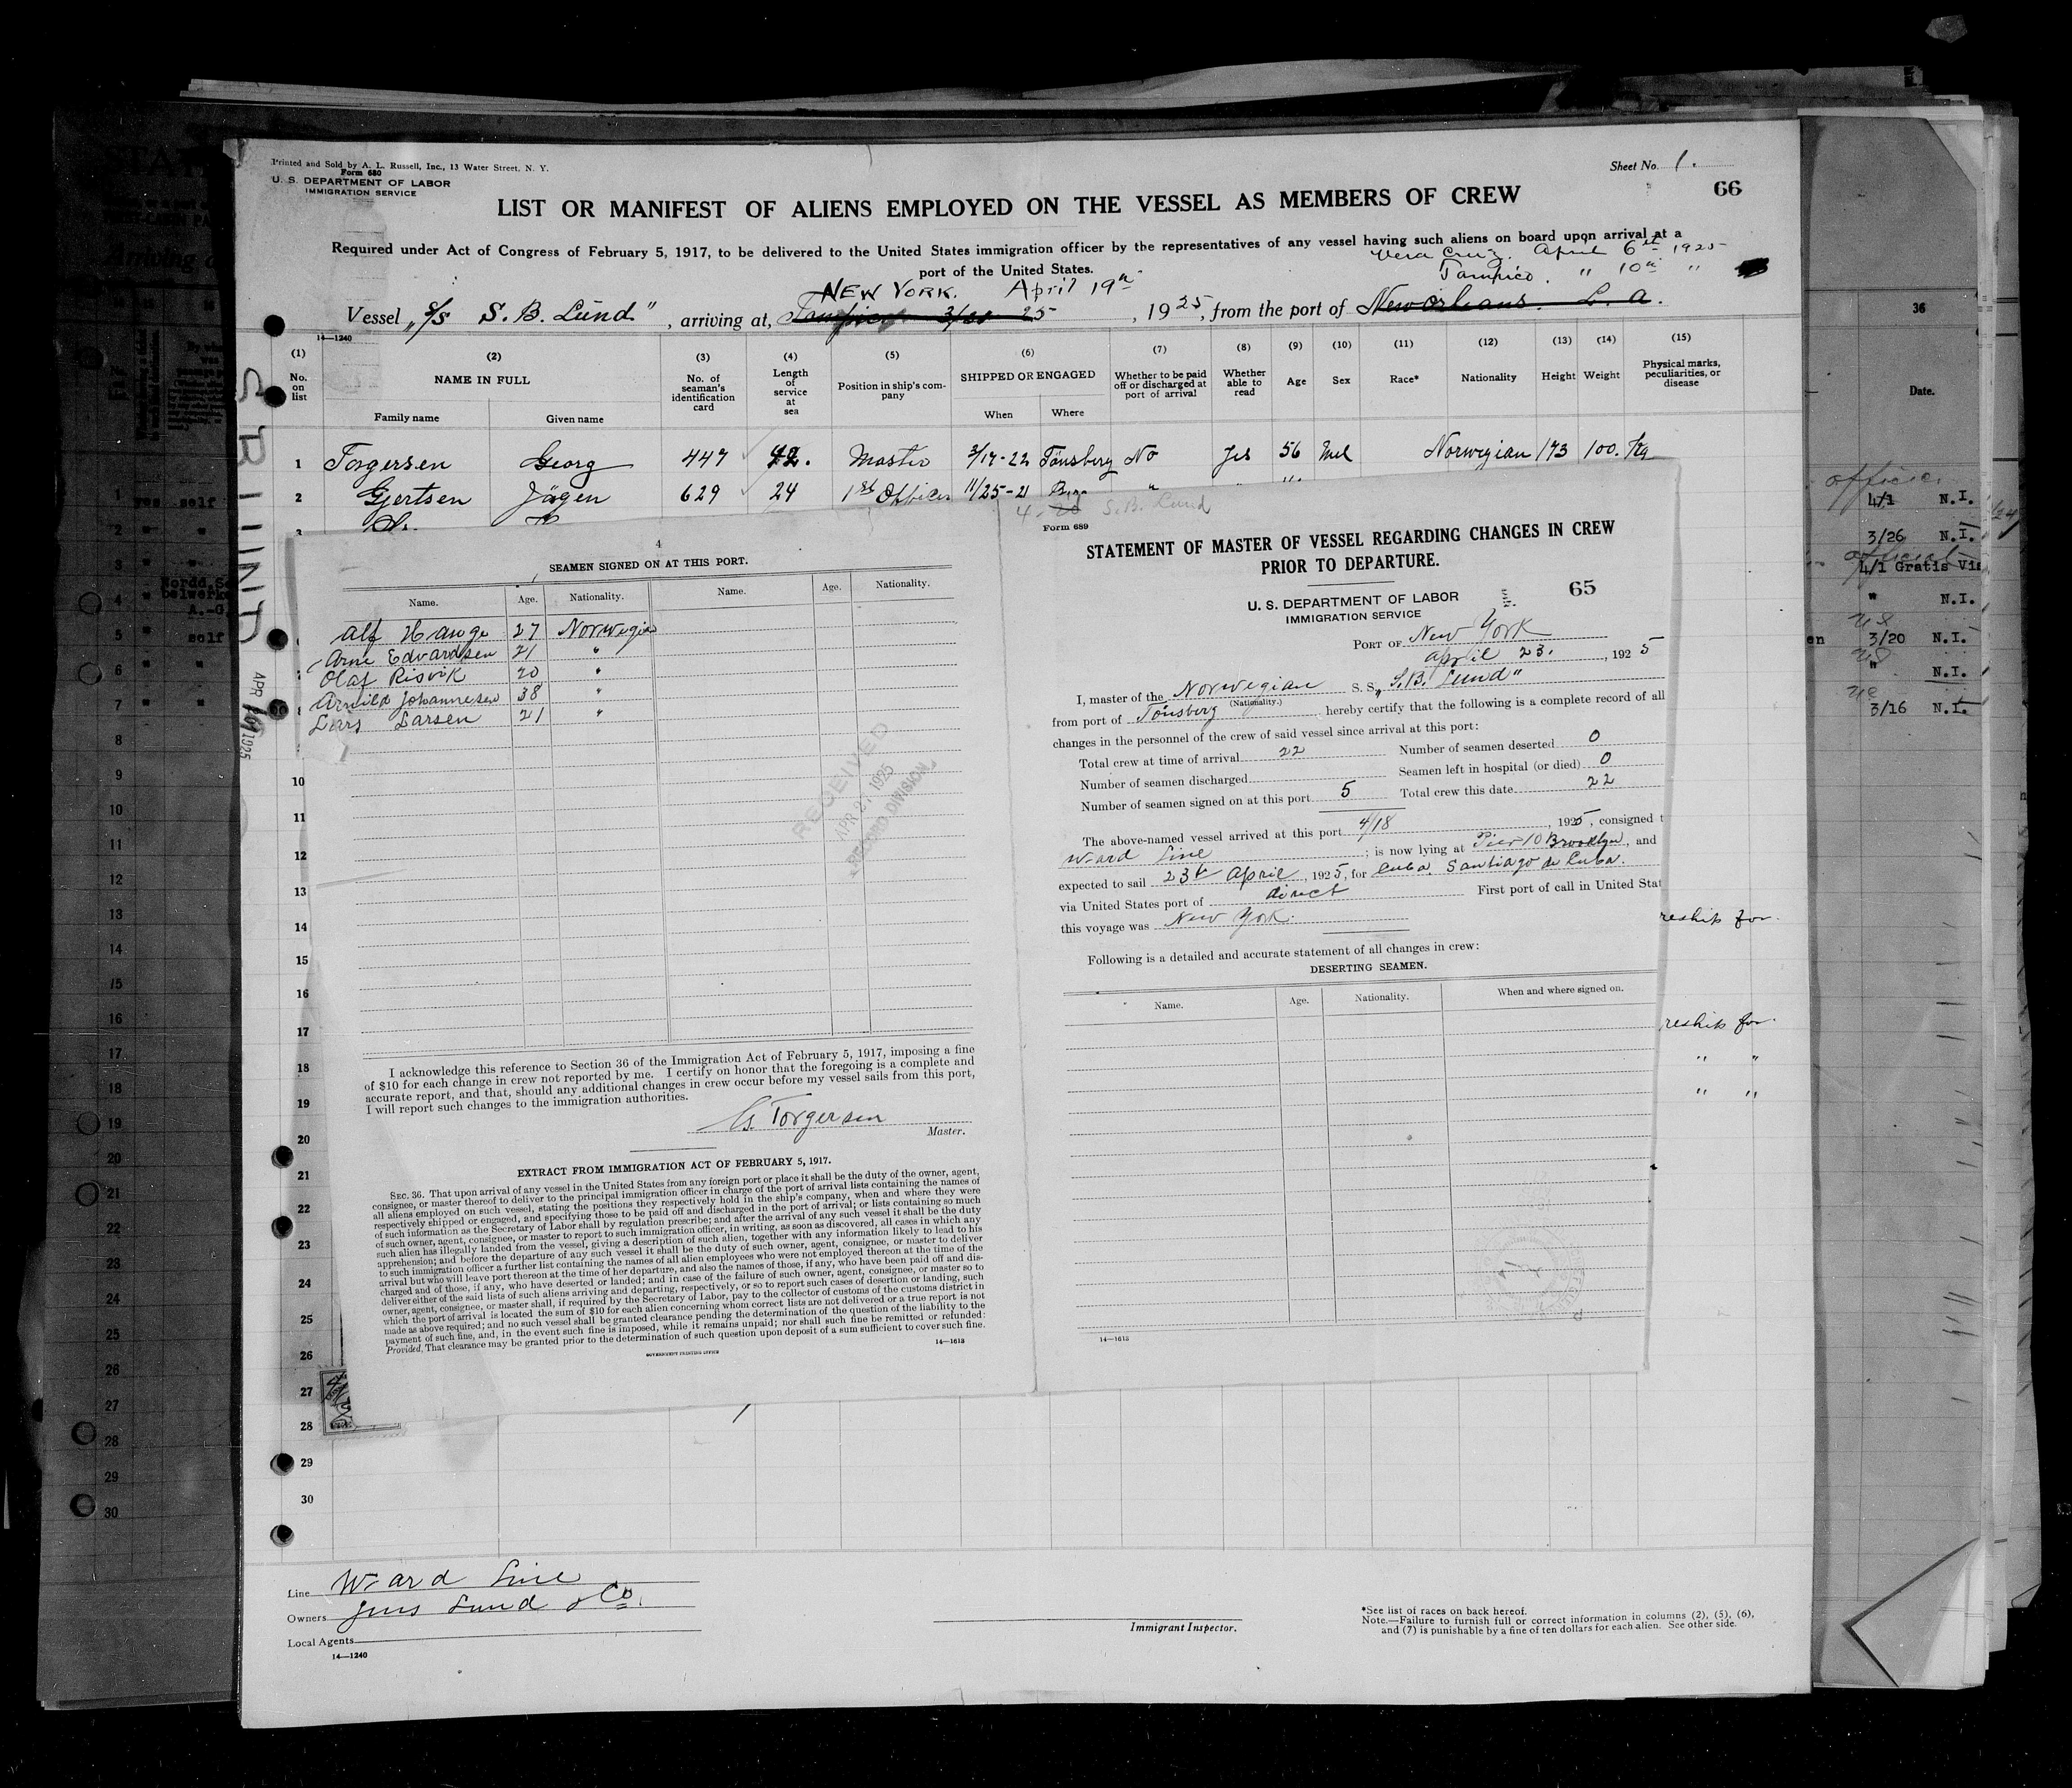 Printed and Sold by A. L. Russell, Inc., 13 Water Street, N. Y.
Form 680
U. S. DEPARTMENT OF LABOR
IMMIGRATION SERVICE
Sheet No. 1.
66
LIST OR MANIFEST OF ALIENS EMPLOYED ON THE VESSEL AS MEMBERS OF CREW
Required under Act of Congress of February 5, 1917, to be delivered to the United States immigration officer by the representatives of any vessel having such aliens on board upon arrival at a
port of the United States.
Vera Cruz. April 6th 1925
Tampico. " 10th "
NEW YORK. April 19th
Vessel „S/S S. B. Lund", arriving at, Tampico 3/ 25, 1925, from the port of New Orleans. L. a.
14—1240
(1) (2) (3) (4) (5) (6) (7) (8) (9) (10) (11) (12) (13) (14) (15)
No. on list
NAME IN FULL
Family name
Given name
No. of seaman's identification card
Length of service at sea
Position in ship's company
SHIPPED OR ENGAGED
When
Where
Whether to be paid off or discharged at port of arrival
Whether able to read
Age
Sex
Race*
Nationality
Height
Weight
Physical marks, peculiarities, or disease
1 Torgersen Georg 447 42. Master 3/17-22 Tönsberg No Yes 56 Mel Norwegian 173 100. Kg
2 Gjertsen Jörgen 629 24 1st Officer 11/25-21 "
3
4
SEAMEN SIGNED ON AT THIS PORT.
Name. Age. Nationality. Name. Age. Nationality.
Alf Hauge 27 Norwegian
Arne Edvardsen 21 "
Olaf Risvik 20 "
Arnild Johannesen 38 "
Lars Larsen 21 "
RECEIVED
APR 27 1925
RECORD DIVISION
I acknowledge this reference to Section 36 of the Immigration Act of February 5, 1917, imposing a fine
of $10 for each change in crew not reported by me. I certify on honor that the foregoing is a complete and
accurate report, and that, should any additional changes in crew occur before my vessel sails from this port,
I will report such changes to the immigration authorities.
G. Torgersen
Master.
EXTRACT FROM IMMIGRATION ACT OF FEBRUARY 5, 1917.
SEC. 36. That upon arrival of any vessel in the United States from any foreign port or place it shall be the duty of the owner, agent,
consignee, or master thereof to deliver to the principal immigration officer in charge of the port of arrival lists containing the names of
all aliens employed on such vessel, stating the positions they respectively hold in the ship's company, when and where they were
respectively shipped or engaged, and specifying those to be paid off and discharged in the port of arrival; or lists containing so much
of such information as the Secretary of Labor shall by regulation prescribe; and after the arrival of any such vessel it shall be the duty
of such owner, agent, consignee, or master to report to such immigration officer, in writing, as soon as discovered, all cases in which any
such alien has illegally landed from the vessel, giving a description of such alien, together with any information likely to lead to his
apprehension; and before the departure of any such vessel it shall be the duty of such owner, agent, consignee, or master to deliver
to such immigration officer a further list containing the names of all alien employees who were not employed thereon at the time of the
arrival but who will leave port thereon at the time of her departure, and also the names of those, if any, who have been paid off and dis-
charged and of those, if any, who have deserted or landed; and in case of the failure of such owner, agent, consignee, or master so to
deliver either of the said lists of such aliens arriving and departing, respectively, or so to report such cases of desertion or landing, such
owner, agent, consignee, or master shall, if required by the Secretary of Labor, pay to the collector of customs of the customs district in
which the port of arrival is located the sum of $10 for each alien concerning whom correct lists are not delivered or a true report is not
made as above required; and no such vessel shall be granted clearance pending the determination of the question of the liability to the
payment of such fine, and, in the event such fine is imposed, while it remains unpaid; nor shall such fine be remitted or refunded:
Provided, That clearance may be granted prior to the determination of such question upon deposit of a sum sufficient to cover such fine.
GOVERNMENT PRINTING OFFICE
14—1613
S. B. Lund
Form 689
STATEMENT OF MASTER OF VESSEL REGARDING CHANGES IN CREW
PRIOR TO DEPARTURE.
U. S. DEPARTMENT OF LABOR
IMMIGRATION SERVICE
65
PORT OF New York
April 23., 1925
I, master of the Norwegian S. S. „S.B. Lund"
(Nationality.)
from port of Tönsberg, hereby certify that the following is a complete record of all
changes in the personnel of the crew of said vessel since arrival at this port:
Total crew at time of arrival 22 Number of seamen deserted 0
Number of seamen discharged Seamen left in hospital (or died) 0
Number of seamen signed on at this port 5 Total crew this date 22
The above-named vessel arrived at this port 4/18, 1925, consigned t
Ward Line; is now lying at Pier 10 Brooklyn, and
expected to sail 23th April, 1925, for Cuba, Santiago de Cuba.
via United States port of direct First port of call in United Stat
this voyage was New York.
Following is a detailed and accurate statement of all changes in crew:
DESERTING SEAMEN.
Name. Age. Nationality. When and where signed on.
14—1613
reship for
reship for
" "
" "
10
11
12
13
14
15
16
17
18
19
20
21
22
23
24
25
26
27
28
29
30
S B LUND
APR 1925
Line Ward Line
Owners Jens Lund & Co.
Local Agents
14—1240
Immigrant Inspector.
*See list of races on back hereof.
Note.—Failure to furnish full or correct information in columns (2), (5), (6),
and (7) is punishable by a fine of ten dollars for each alien. See other side.
36
Date.
4/1 N.I.
3/26 N.I.
4/1 Gratis Vis
" N.I.
3/20 N.I.
" N.I.
3/16 N.I.